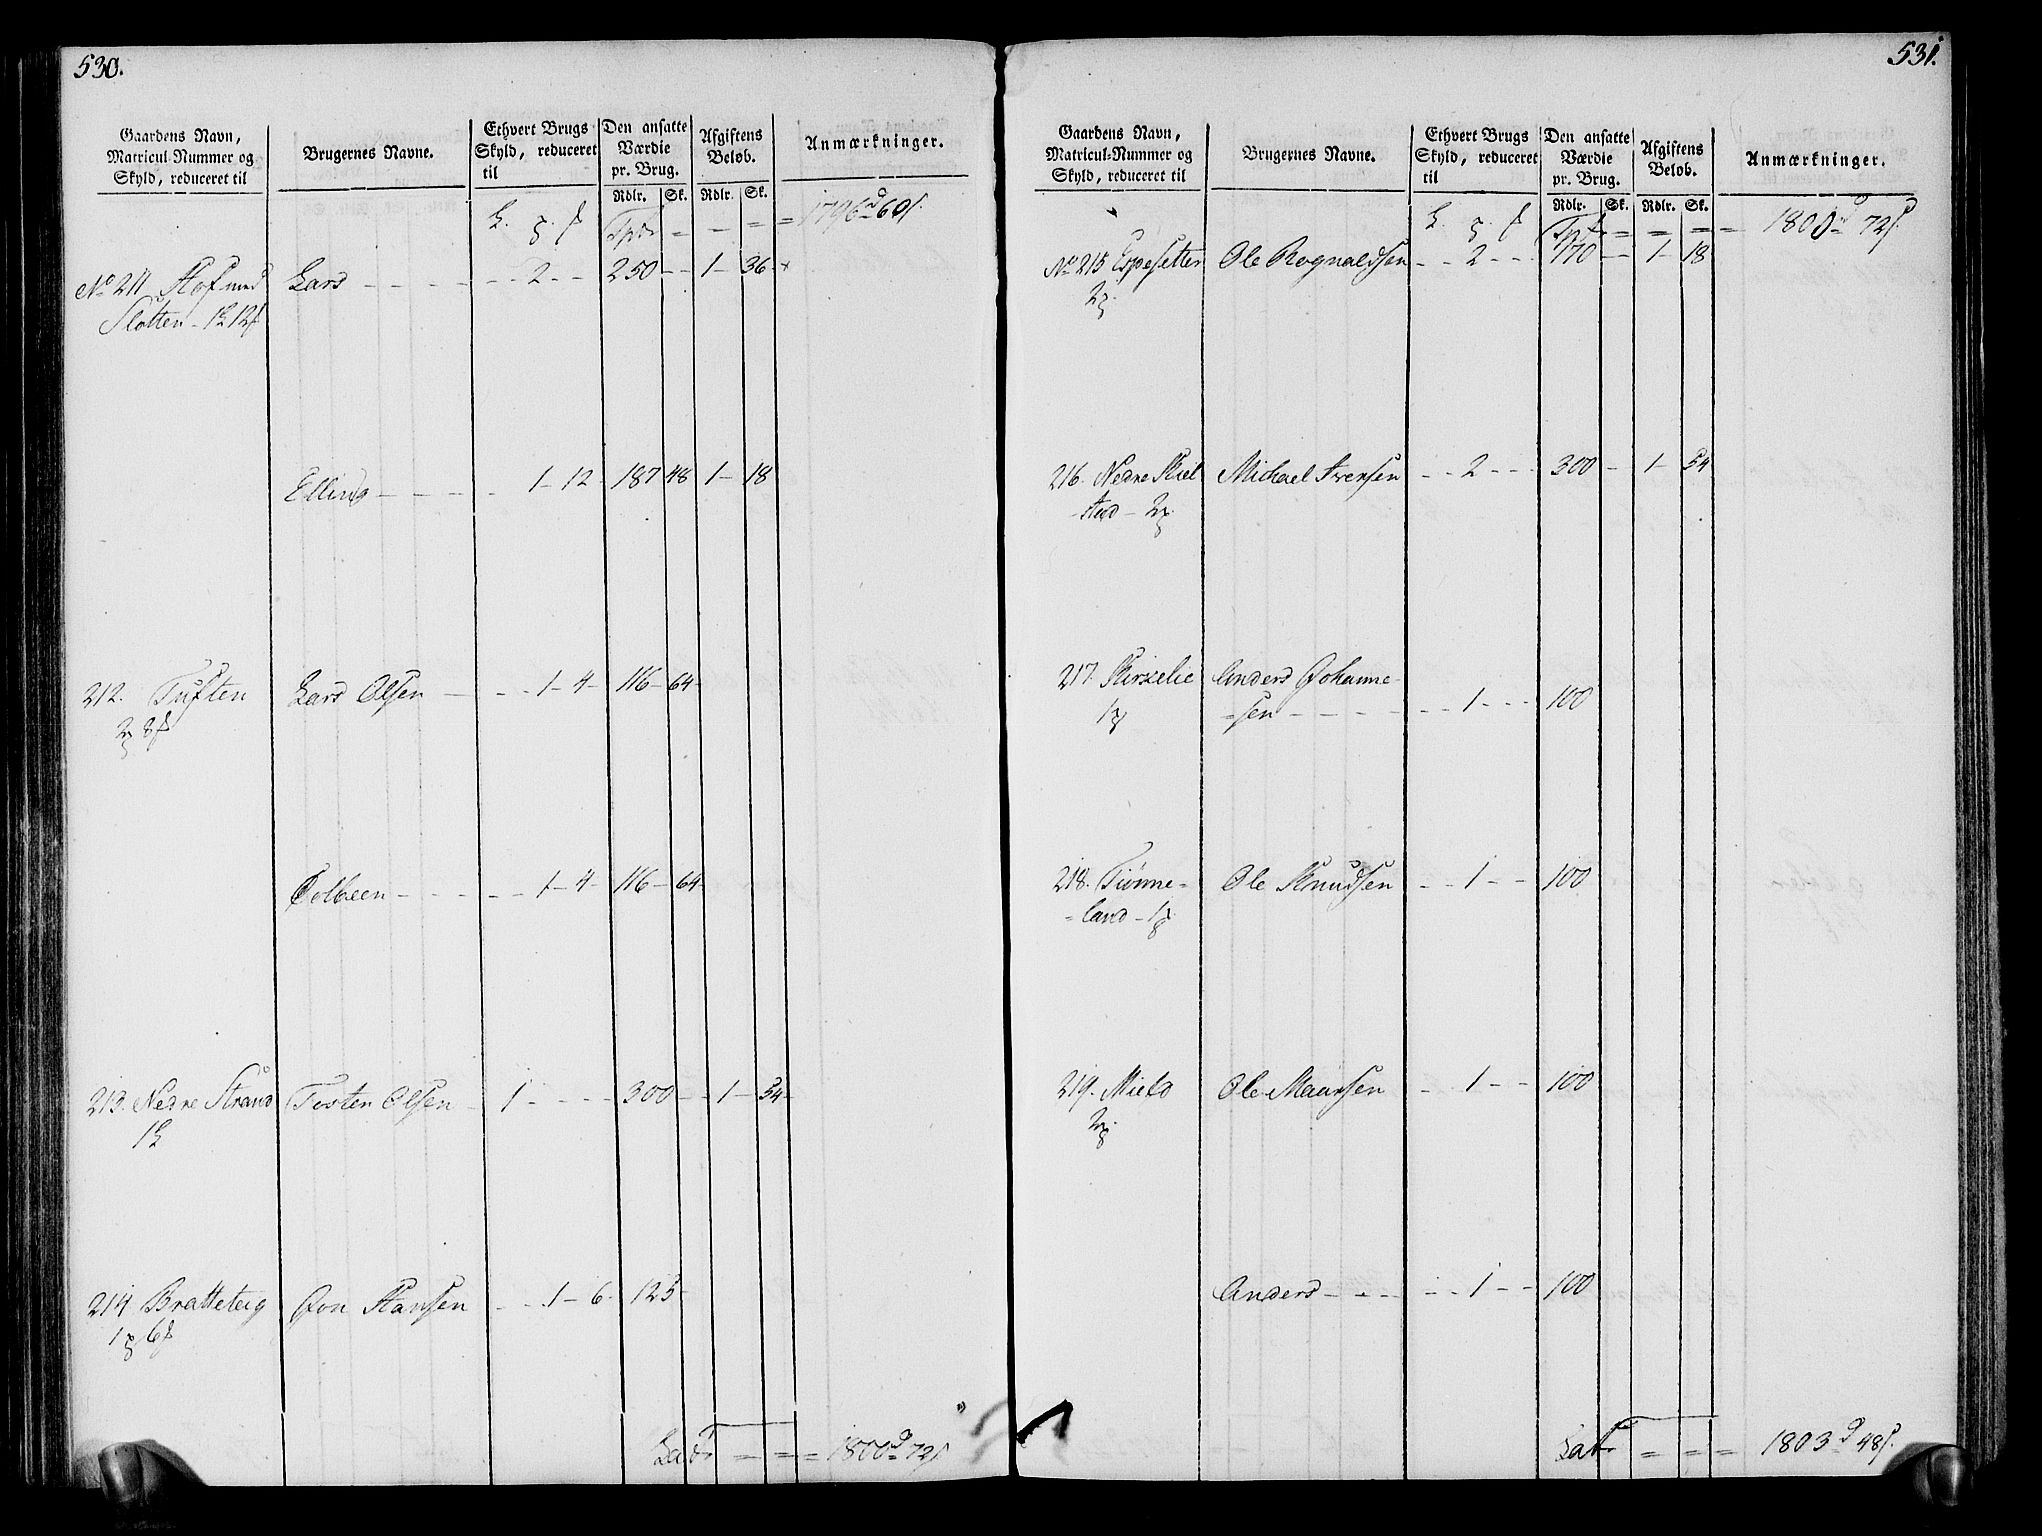 530.
Gaardens Navn,
Matricul-Nummer og
Skyld, reduceret til
Brugernes Navne.
Ethvert Brugs
Skyld, reduceret
til
Den ansatte
Værdie
pr. Brug.
Rdlr. Sk.
Afgiftens
Beløb.
Rdlr. Sk.
Anmærkninger.
= = = = 1796 60
No 211 Hof med Lars - - - - 2 - - 250 - - 1 - 36
Slotten - 12
Elling - - - - 1 - 12 - 187 48 1 - 18
212. Tuften Lars Olsen - - - 1 - 4 - 116 - 64 -
2 8
Tolleen - - - - 1 - 4 - 116 - 64 -
213. Nedre Strand Tosten Olsen - 1 - - - - 300 - - 1 - 54 -
1
214 Bratteteig Jon Hansen - - 1 - 6 - 125 -
1 6
Lat = = = 1800 72
531.
Gaardens Navn,
Matricul-Nummer og
Skyld, reduceret til
Brugernes Navne.
Ethvert Brugs
Skyld, reduceret
til
Den ansatte
Værdie
pr. Brug.
Rdlr. Sk.
Afgiftens
Beløb.
Rdlr. Sk.
Anmærkninger.
= = = = 1800 72
No 215 Espesetter Ole Rognaldsen - - 2 - - - 170 - - 1 - 18
2
216. Nedre Skiel Michael Iversen - - 2 - - - 300 - 1 - 54
stad - 2
217. Skirzelie Anders Johanne-
1 =sen - - - - - - 1 - - - 100
218. Tiønne= Ole Knudsen - - 1 - - 100
=land - 1
219. Mield Ole Maursen - 1 - - 100
2
Anders - - - - - 1 - - 100
Lat = = = 1803 48